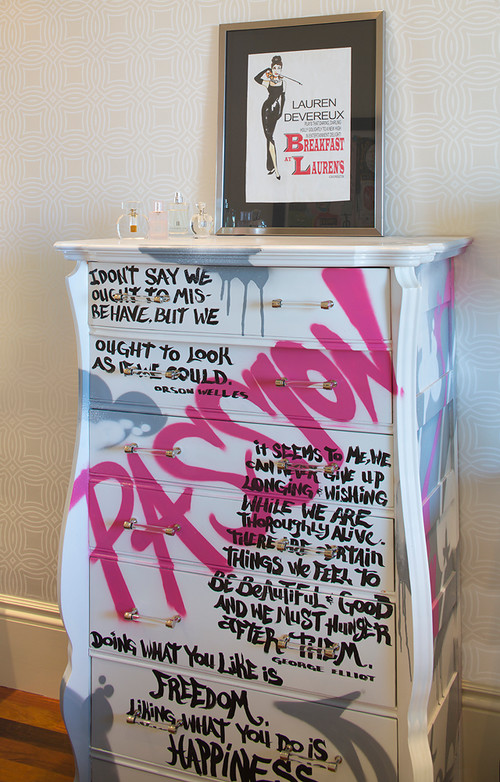 LAUREN
DEVEREUX
BREAKFAST
AT LAUREN'S
I DON'T SAY WE
OUGHT TO MIS-
BEHAVE, BUT WE
OUGHT TO LOOK
AS IF WE COULD.
ORSON WELLES
PASSION
IT SEEMS TO ME, WE
CAN NEVER GIVE UP
LONGING & WISHING
WHILE WE ARE
THOROUGHLY ALIVE.
THERE ARE CERTAIN
THINGS WE FEEL TO
BE BEAUTIFUL & GOOD
AND WE MUST HUNGER
AFTER THEM.
GEORGE ELLIOT
DOING WHAT YOU LIKE IS
FREEDOM.
LIKING WHAT YOU DO IS
HAPPINESS